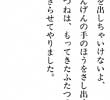 を出しちゃいけないよ、
んげんの手のほうをさし出
つねは、もってきたふたつ
きらせてやりました。